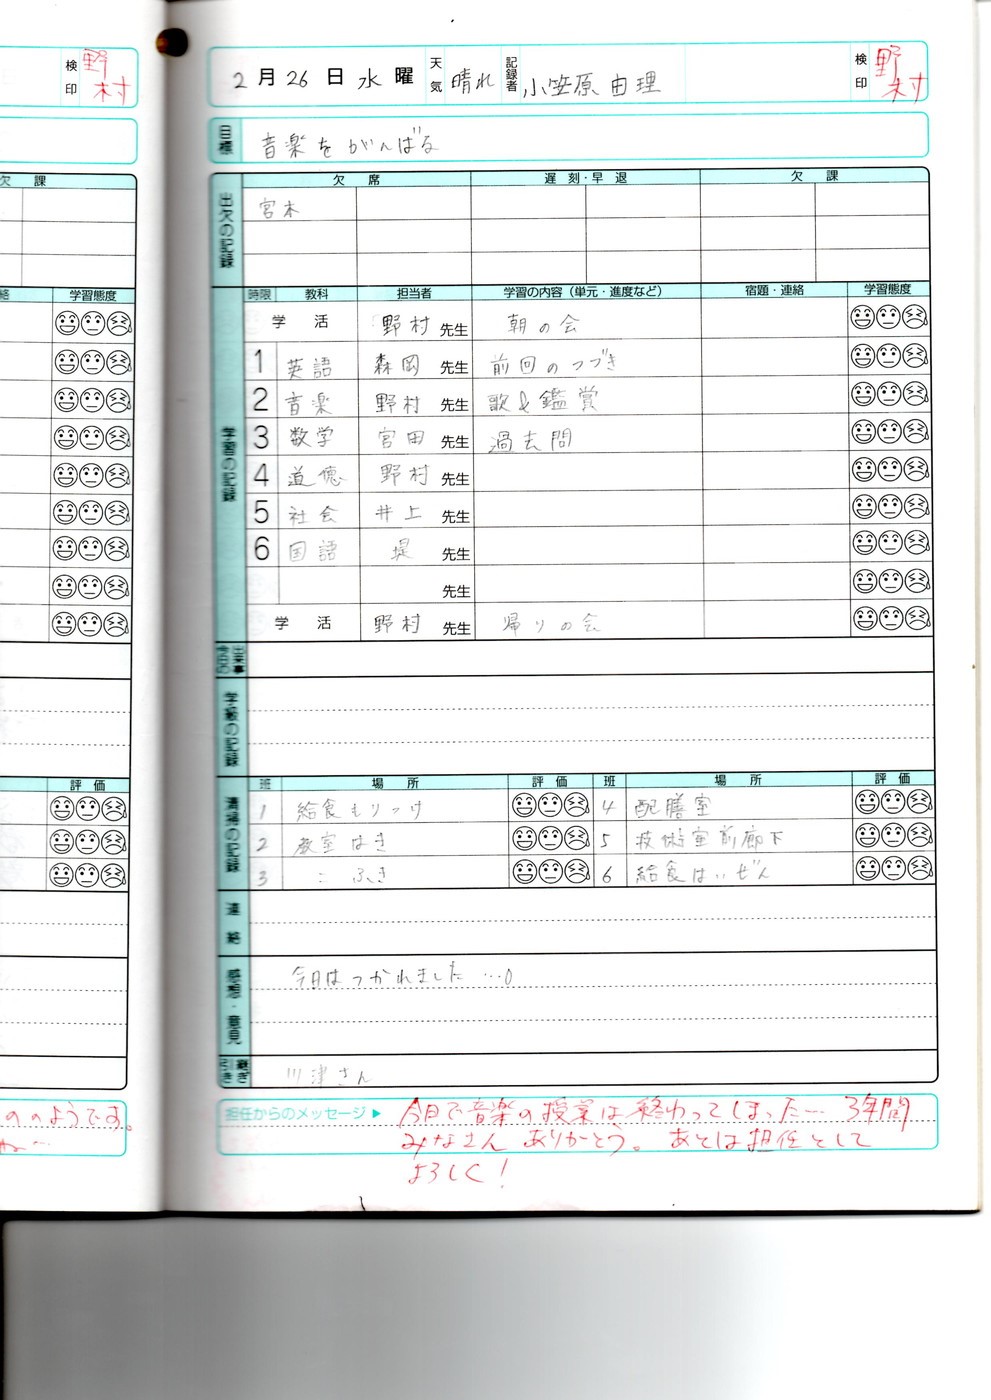 検印 野村
欠 課
絡 学習態度
評 価
ののようです。
2月26日 水曜 天気 晴れ 記録者 小笠原由理 検印 野村
目標 音楽をがんばる
出欠の記録 欠 席 遅 刻・早 退 欠 課
宮本
学習の記録 時限 教科 担当者 学習の内容(単元・進度など) 宿題・連絡 学習態度
学 活 野村 先生 朝の会
1 英語 森岡 先生 前回のつづき
2 音楽 野村 先生 歌&鑑賞
3 数学 宮田 先生 過去問
4 道徳 野村 先生
5 社会 井上 先生
6 国語 堤 先生
先生
学 活 野村 先生 帰りの会
今日の出来事
学級の記録
清掃の記録 班 場 所 評 価 班 場 所 評 価
1 給食もりつけ 4 配膳室
2 教室はき 5 技術室前廊下
3 〃 ふき 6 給食はいぜん
連 絡
感想・意見 今日はつかれました…。
引き継ぎ 川津さん
担任からのメッセージ▶ 今日で音楽の授業は終わってしまった… 3年間
みなさん ありがとう。 あとは担任として
よろしく!